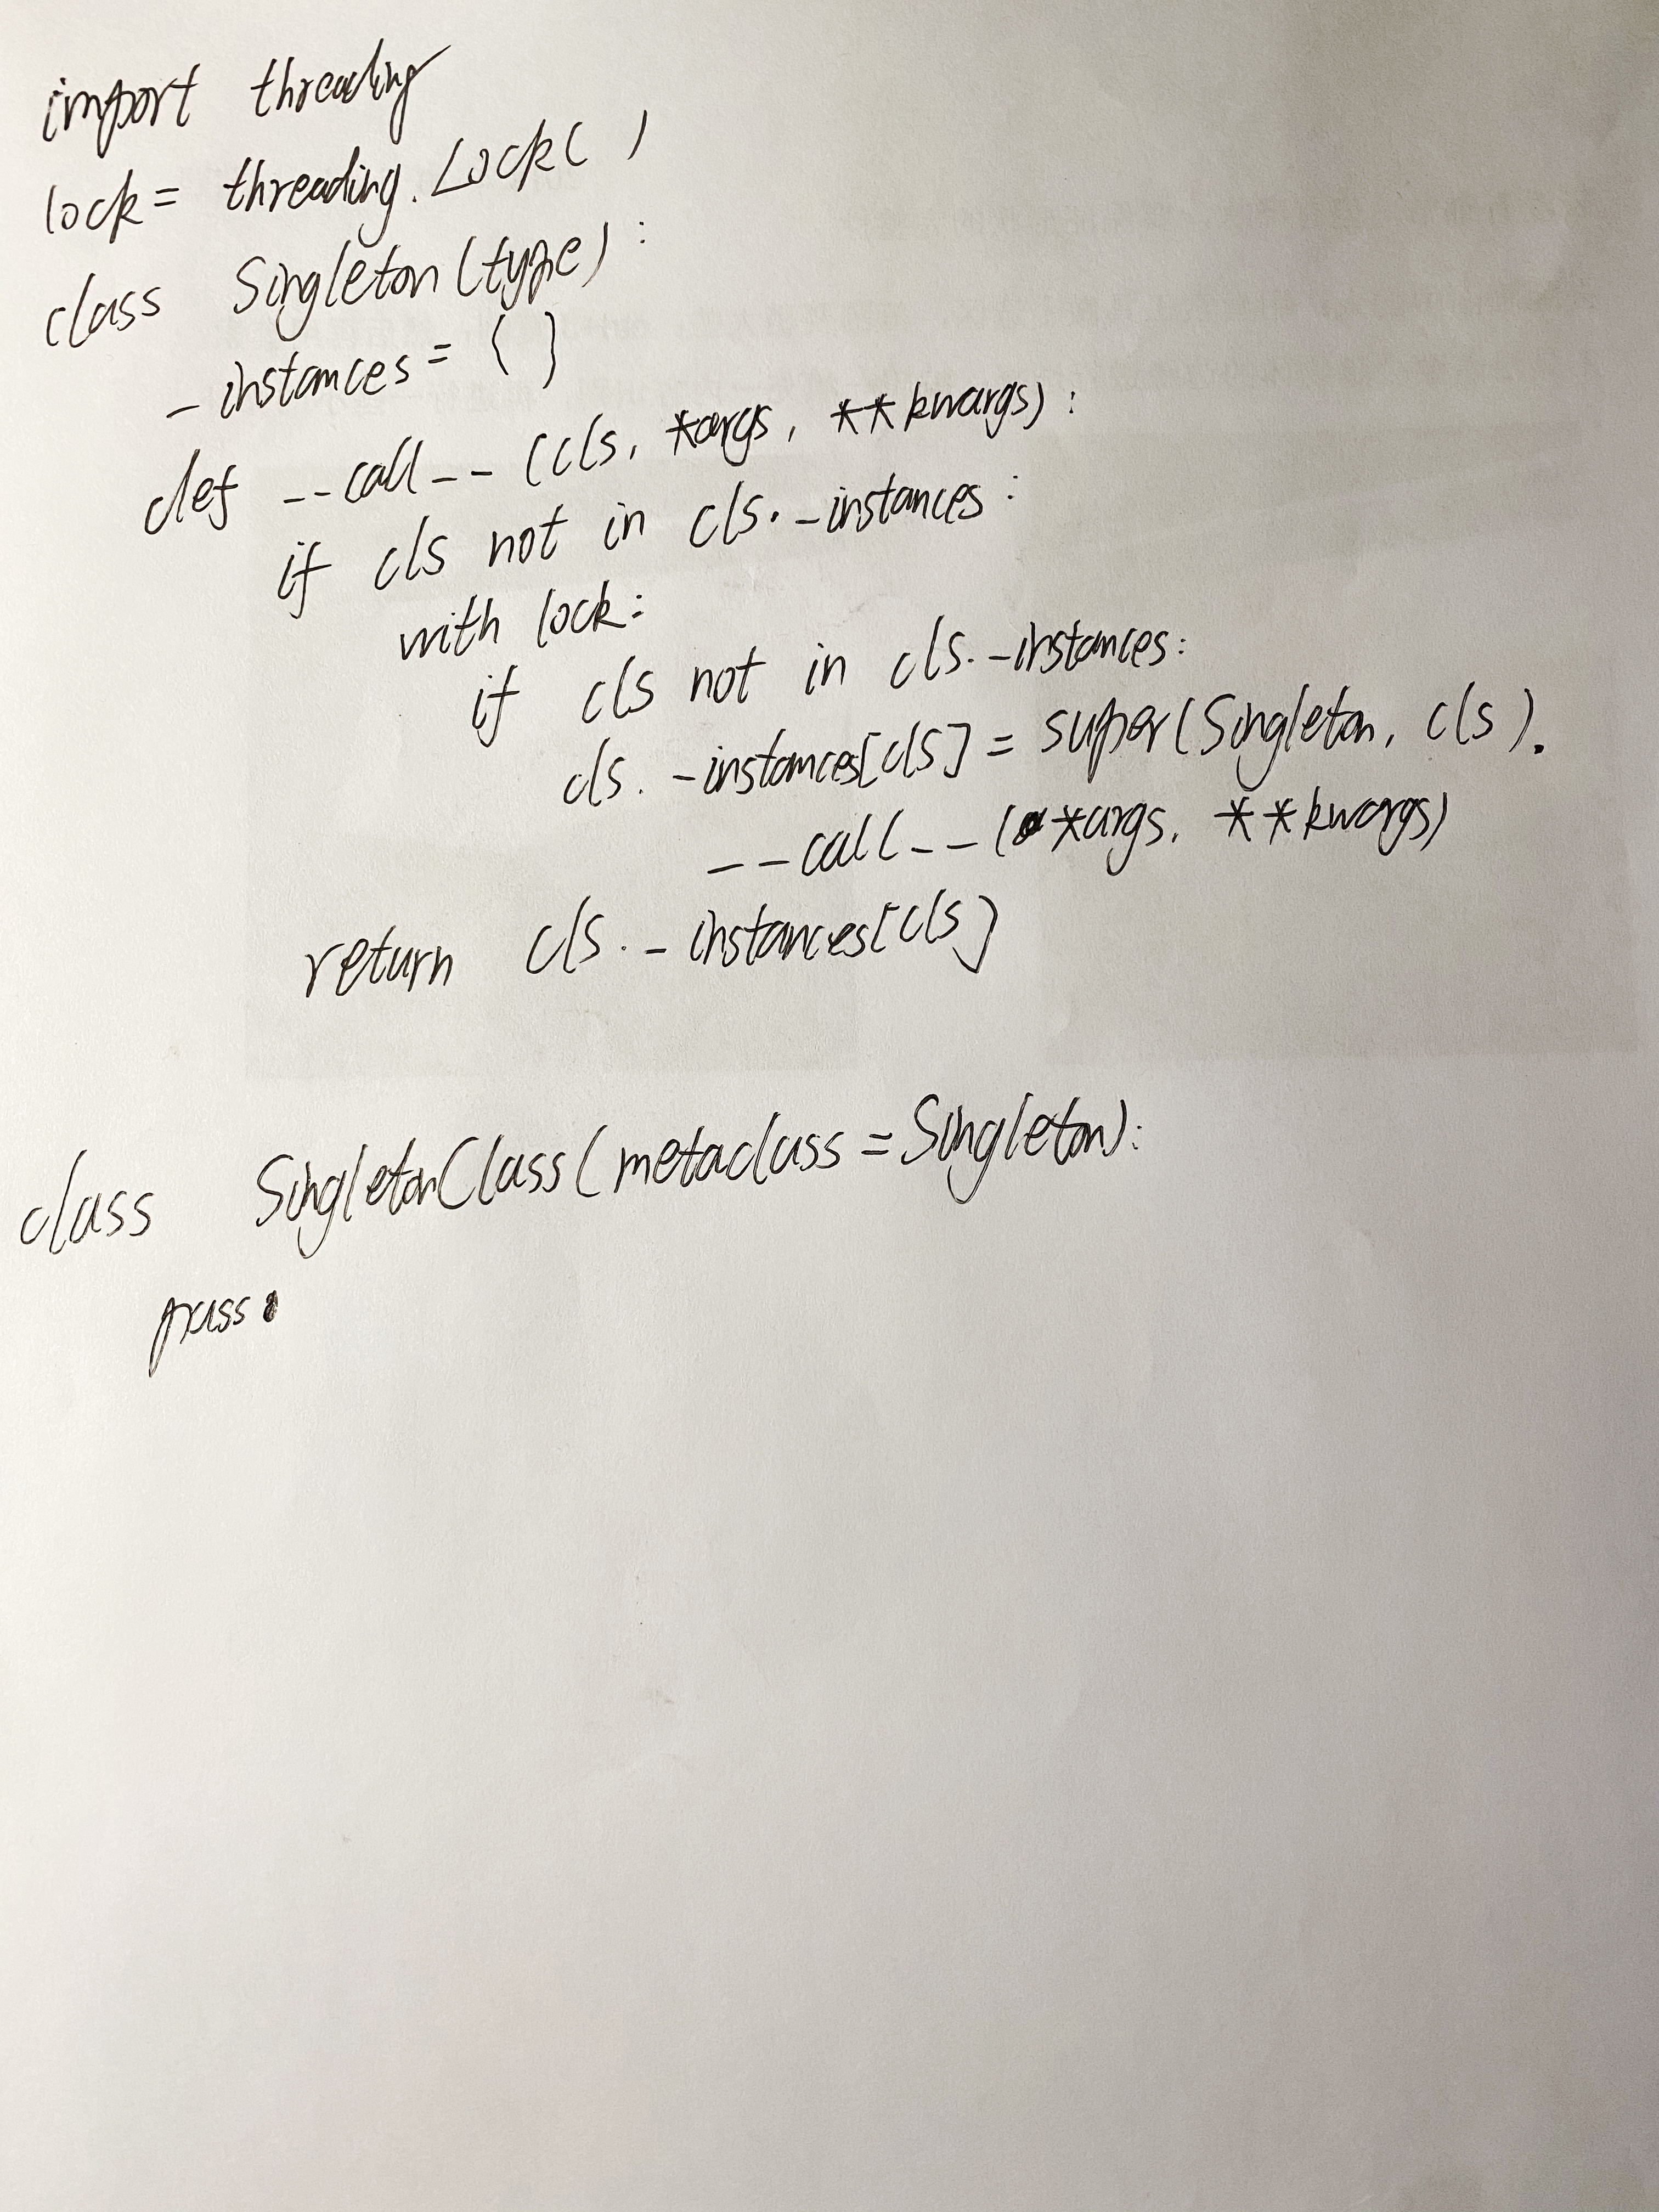 import threading
lock = threading.Lock( )
class Singleton(type):
_instances = {}
def __call__(cls, *args, **kwargs):
if cls not in cls._instances:
with lock:
if cls not in cls._instances:
cls._instances[cls] = super(Singleton, cls).
__call__(*args, **kwargs)
return cls._instances[cls]
class SingletonClass(metaclass = Singleton):
pass